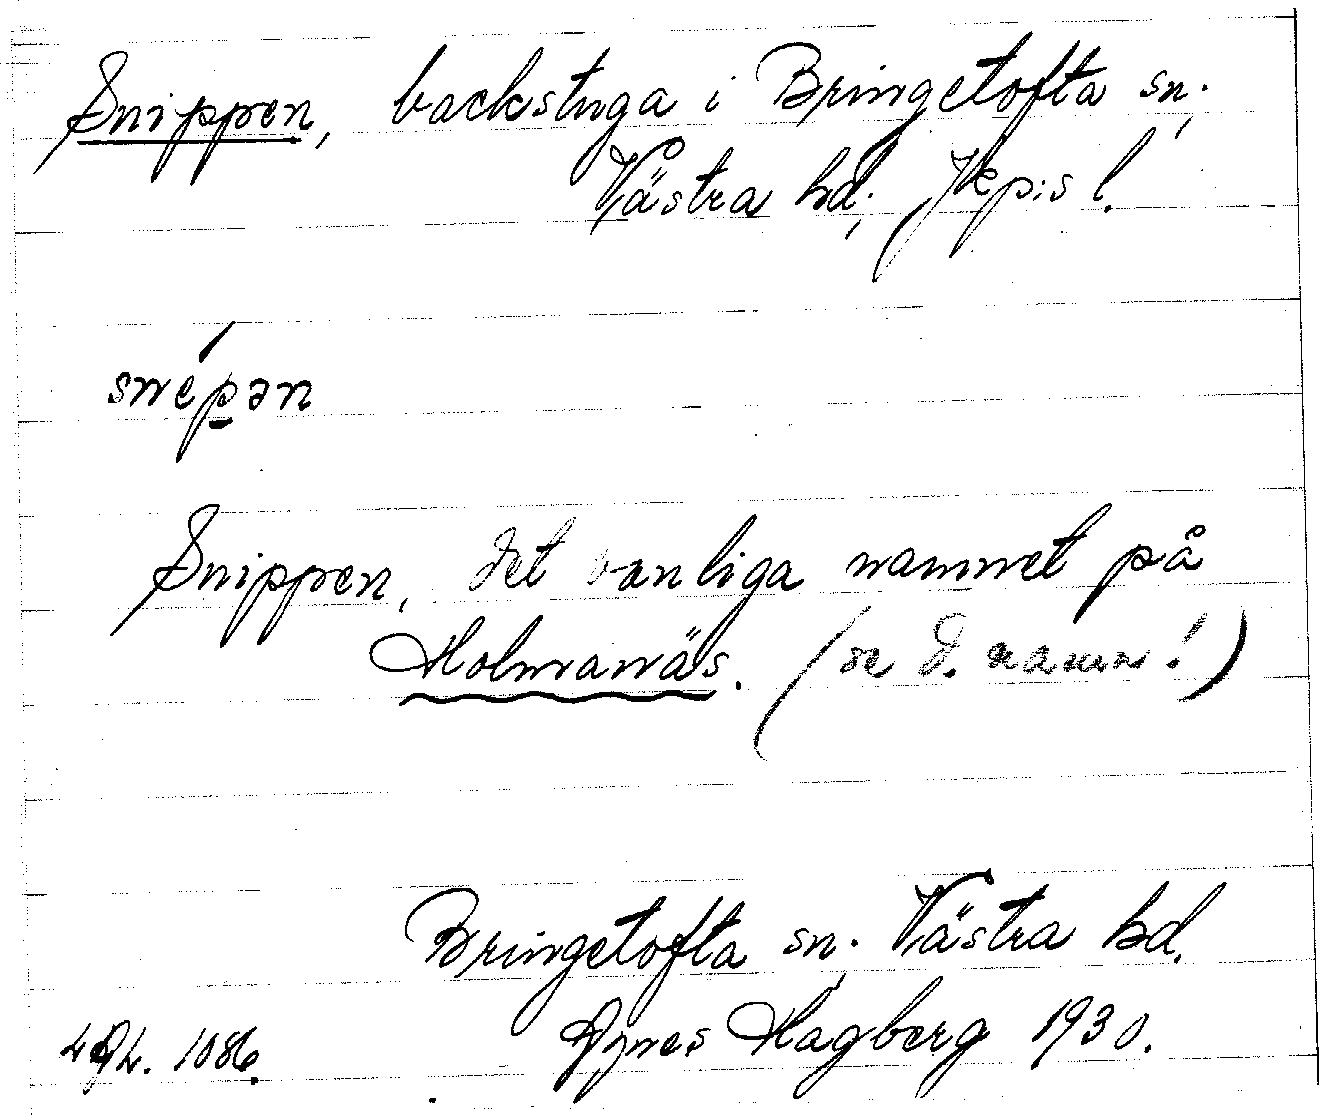 Snippen, backstuga i Bringetofta sn.,
Västra hd., Jkp:s l.
snépən
Snippen, det vanliga namnet på
Holmanäs. (se d. namn!)
Bringetofta sn., Västra hd.
Agnes Hagberg 1930.
1086.